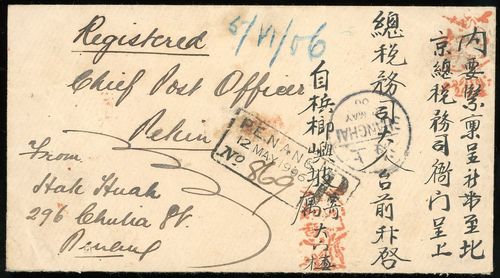 Registered
5/VI/06
Chief Post Officer
Pekin
From
Hak Huah
296 Chulia St.
Penang
PENANG
12 MAY 1906
No 869
SHANGHAI
MAY
06
內要緊稟呈社弟至北
京總稅務司衙門呈上
總稅務司大人台前升啓
自檳榔嶼